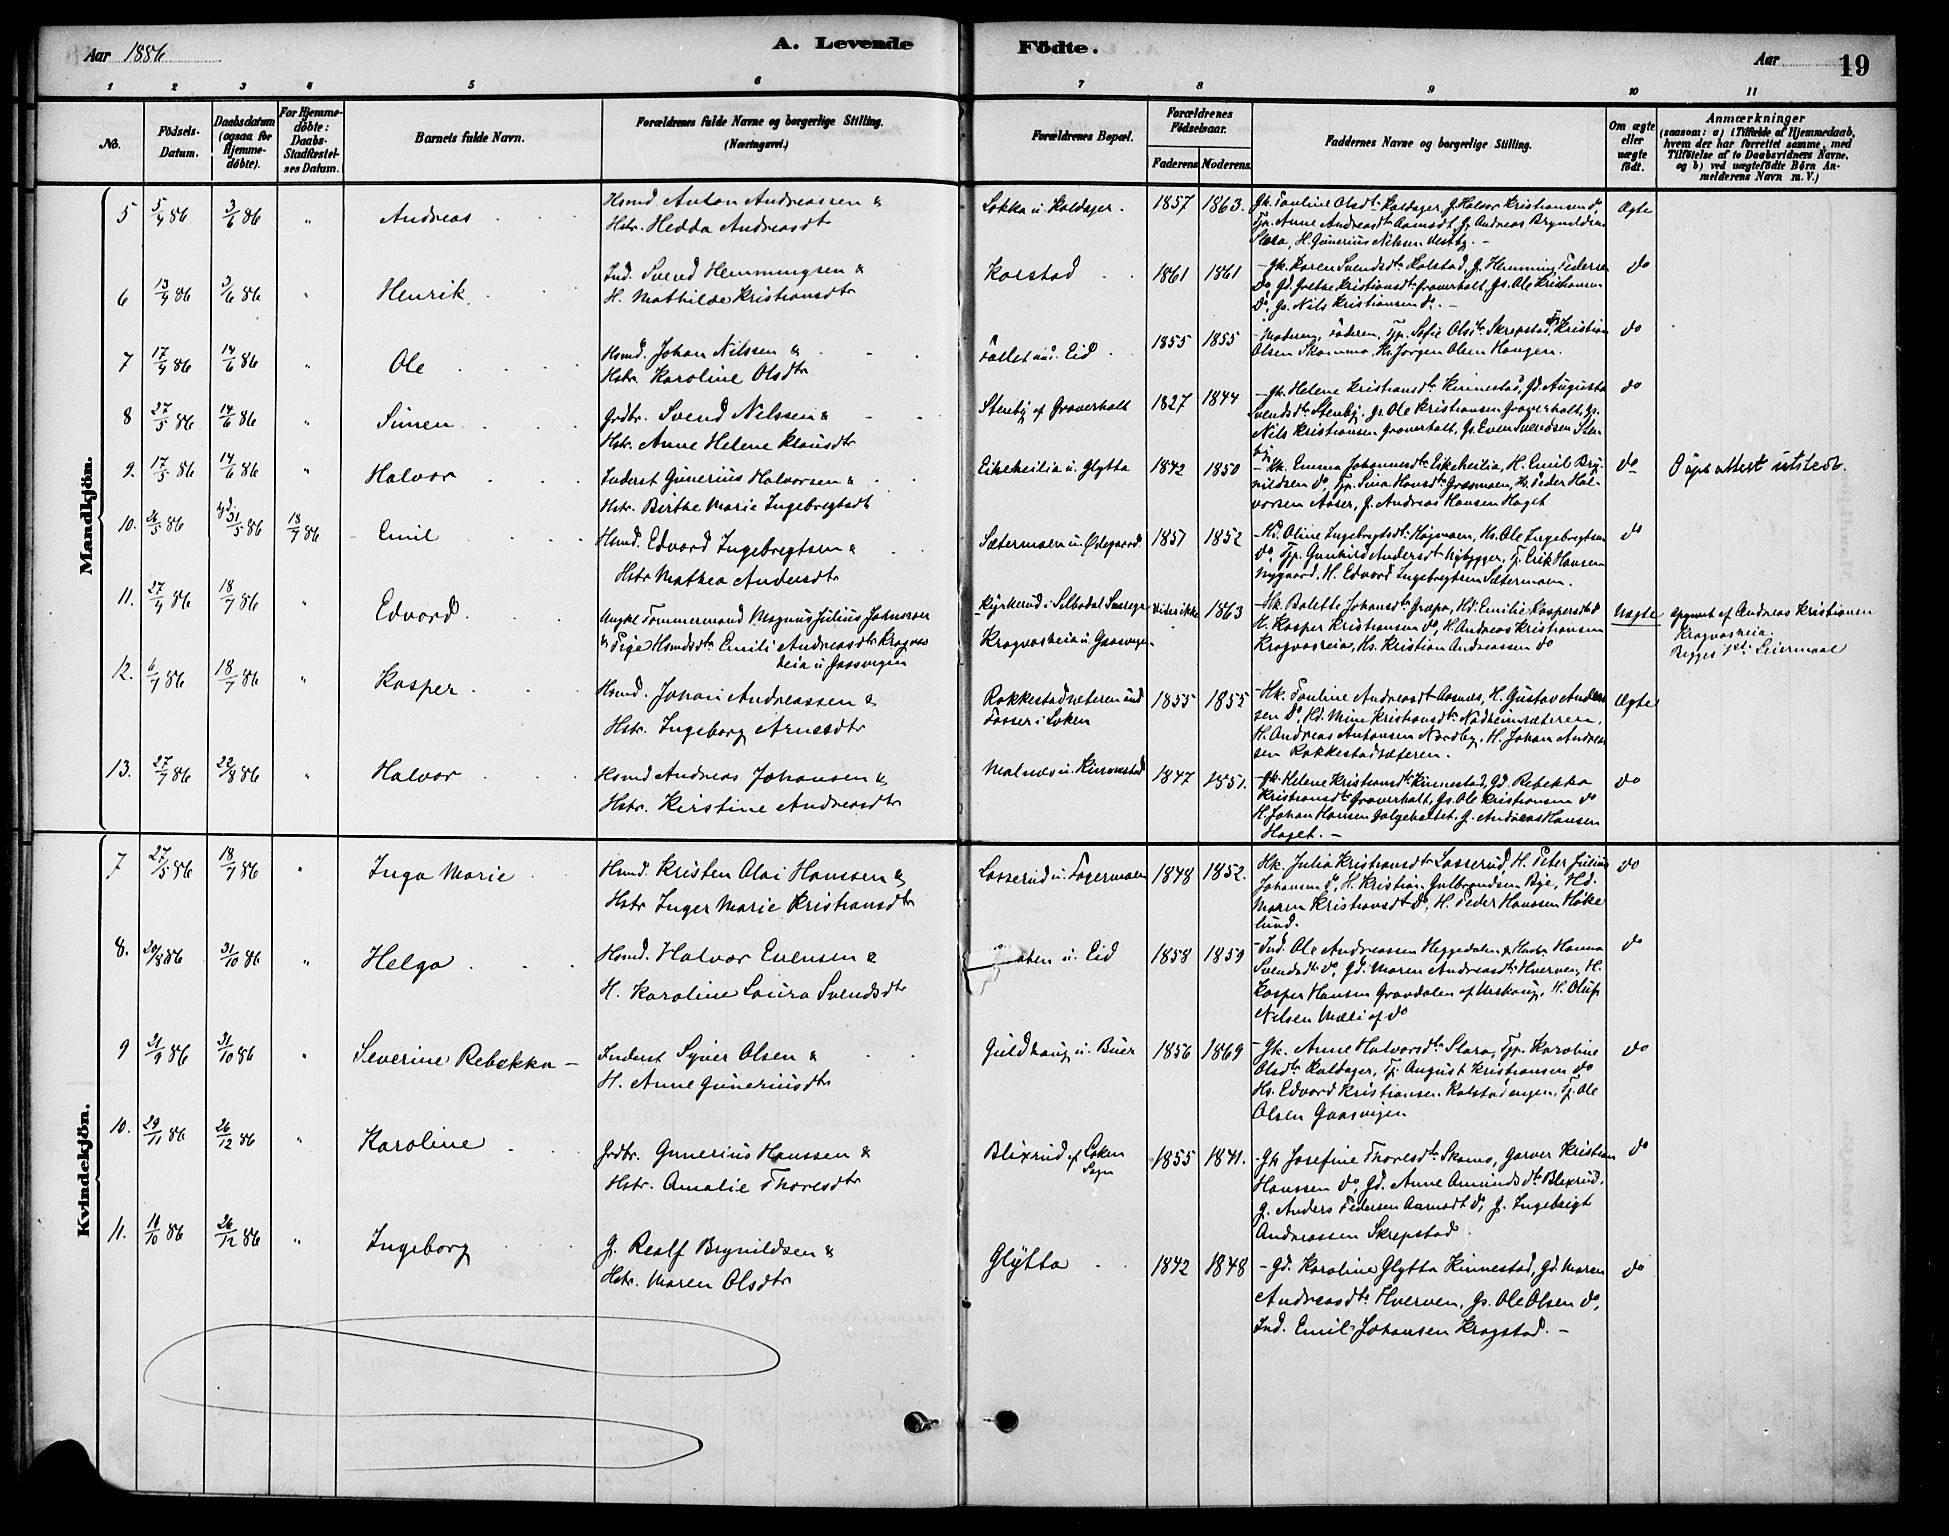 Aar 1886
A. Levende
Födte.
Aar
19
1 2 3 4 5 6 7 8 9 10 11
No.
Födsels-Datum.
Daabsdatum (ogsaa for Hjemme-döbte).
For Hjemme-döbte: Daabs-Stadfæstel-ses Datum.
Barnets fulde Navn.
Forældrenes fulde Navne og borgerlige Stilling.
(Næringsvei.)
Forældrenes Bopæl.
Forældrenes Födselsaar.
Faderens. Moderens.
Faddernes Navne og borgerlige Stilling.
Om ægte eller uægte födt.
Anmærkninger
(saasom: a) i Tilfælde af Hjemmedaab,
hvem der har forrettet samme, med
Tilföielse af to Daabsvidners Navne.
og b) ved uægtefödte Börn An-
melderens Navn m. V.)
Mandkjön.
5 5/4 86 3/6 86 " Andreas
Hsmd Anton Andreassen &
Hstr. Hedda Andreasdtr
Lokka u. Kaldager. 1857 1863.
Gk. Pauline Olsdtr Kaldager, G. Halvor Kristiansen do,
Tp. Anne Andreasdtr Aamodt, G. Andreas Brynildsen
Slora, H. Gunerius Nilsen Vestby. -
Ægte
6 13/4 86 3/6 86 " Henrik
Ind. Svend Hemmingsen &
H. Mathilde Kristiansdtr
Kolstad 1861 1861
- Gk. Karen Svendsdtr Kolstad, G. Hemming Pedersen
do, Gd. Grethe Kristiansdtr Graverholt, Gs. Ole Kristiansen
do, Gs. Nils Kristiansen do. -
do
7 17/4 86 14/6 86 " Ole
Hsmd. Johan Nilssen &
Hstr Karoline Olsdtr
Eid 1855 1855
- Moderen, Faderen, Tp. Sofie Olsdtr Skrepstad, Kristian
Olsen Skamma, Hs. Jørgen Olsen Haugen.
do
8 27/5 86 14/6 86 " Simen
Grdbr. Svend Nilssen &
Hstr. Anne Helene Klausdtr
Stenby af Graverholt 1827 1844
- Gk. Helene Kristiansdtr Kinnestad, Gd. Augusta
Svendsdtr Stenby, Gs. Ole Kristiansen Graverholt, Gs.
Nils Kristiansen Graverholt, Gs. Even Svendsen Sten-
by
do
9. 17/5 86 14/6 86 " Halvor
Inderst Gunerius Halvorsen &
Hstr. Birthe Marie Ingebregtsdtr
Eikeheilia u. Glytta 1842 1850
- Hk. Emma Johannesdtr Eikeheilia, H. Emil Bry-
nildsen do, Tp. Sina Hansdtr Græsmoen, Hs. Peder Hal-
vorsen Aaser, G. Andreas Hansen Haget
do
Dåpsattest utstedt.
10. 26/5 86 31/5 86 18/7 86 Emil
Hsmd. Edvard Ingebregtsen &
Hstr Mathea Andersdtr
Sætermoen u. Ødegaard 1857 1852
- Hd. Oline Ingebregtsdtr Høgmoen, Hs. Ole Ingebregtsen
do, Tp. Gunhild Andersdtr Nybygget, T. Erik Hansen
Nygaard, H. Edvard Ingebregtsen Sætermoen.
do
11. 27/4 86 18/7 86 " Edvard
Ungkl Tømmermand Magnus Julius Johnsen
& Pige Hsmdsdtr Emili Andreasdtr Kragvas
heia u Gaasvigen
Kyrkerud i Silbodal Sverige
Kragvasheia u. Gaasvigen
Vides ikke 1863
- Hk. Balette Johansdtr Græpa, Hd. Emilie Kaspersdtr do
H. Kasper Kristiansen do, H. Andreas Kristiansen
Kragvasheia, Hs. Kristian Andreassen do
Uægte
Opgivet af Andreas Kristiansen
Kragvasheia.
Begges 1ste Leiermaal
12. 6/7 86 18/7 86 " Kasper
Hsmd. Johan Andreassen &
Hstr. Ingeborg Arnesdtr
Rakkestadsæteren und
Fosser i Løken 1855 1855
- Hk. Pauline Andreasdtr Aasnes, H. Gustav Andreas
sen do, Hd. Mine Kristiansdtr Nadheimsæteren,
H. Andreas Antonsen Nordby, H. Johan Andreas
sen Rakkestadsæteren.
Ægte
13. 27/7 86 22/8 86 " Halvor
Hsmd Andreas Johansen &
Hstr. Kirstine Andreasdtr
Malnæs u. Kinnestad 1847 1851.
- Gk. Helene Kristiansdtr Kinnestad, Gd. Rebekka
Kristiansdtr Graverholt, Gs. Ole Kristiansen do
H. Johan Hansen Galgeholtet, G. Andreas Hansen
Haget. -
do
Kvindekjön.
7 27/5 86 18/7 86 " Inga Marie
Hsmd. Kristen Olai Hanssen &
Hstr Inger Marie Kristiansdtr
Lasserud u. Fagermoen 1848 1852.
Hk. Julia Kristiansdtr Lasserud, H. Peter Julius
Johansen do, H. Kristian Gulbrandsen Bye, Hd.
Maren Kristiansdtr do, H. Peder Hanssen Høke
lund.
do
8. 20/8 86 31/10 86 " Helga
Hsmd. Halvor Evensen &
H. Karoline Laura Svendsdtr
u. Eid 1858 1859
- Ind. Ole Andreassen Heggedalen & Hustr Hanna
Svendsdtr do, Gd. Maren Andreasdtr Hverven, H.
Kasper Hansen Gravdalen af Urskoug, H. Oluf
Nilsen Mæli af do
do
9 21/9 86 31/10 86 " Severine Rebekka -
Inderst Syver Olsen &
H. Anne Guneriusdtr
Guldhaug u. Buer 1856 1869
- Gk. Anne Halvorsdtr Slora, Tp. Karoline
Olsdtr Kaldager, Tj. August Kristiansen do
Hs. Edvard Kristiansen Kolstadengen, Tj. Ole
Olsen Gaasvigen
do
10. 29/11 86 26/12 86 " Karoline
Grdbr. Gunerius Hanssen &
Hstr. Amalie Thoresdtr
Blixrud af Løken
Sogn 1855 1841.
- Gk Josefine Thoresdtr Skamo, Garver Kristian
Hanssen do, Gd. Anne Amundsdtr Blixrud,
G. Anders Pedersen Aamodt do, G. Ingebrigt
Andreassen Skrepstad.
do
11. 16/10 86 26/12 86 " Ingeborg
G. Realf Brynildsen &
Hstr. Maren Olsdtr
Glytta 1842 1848
- Gd. Karoline Glytta Kinnestad, Gd. Maren
Andreasdtr Hverven, Gs. Ole Olsen do,
Ind. Emil Johansen Kragstad. -
do